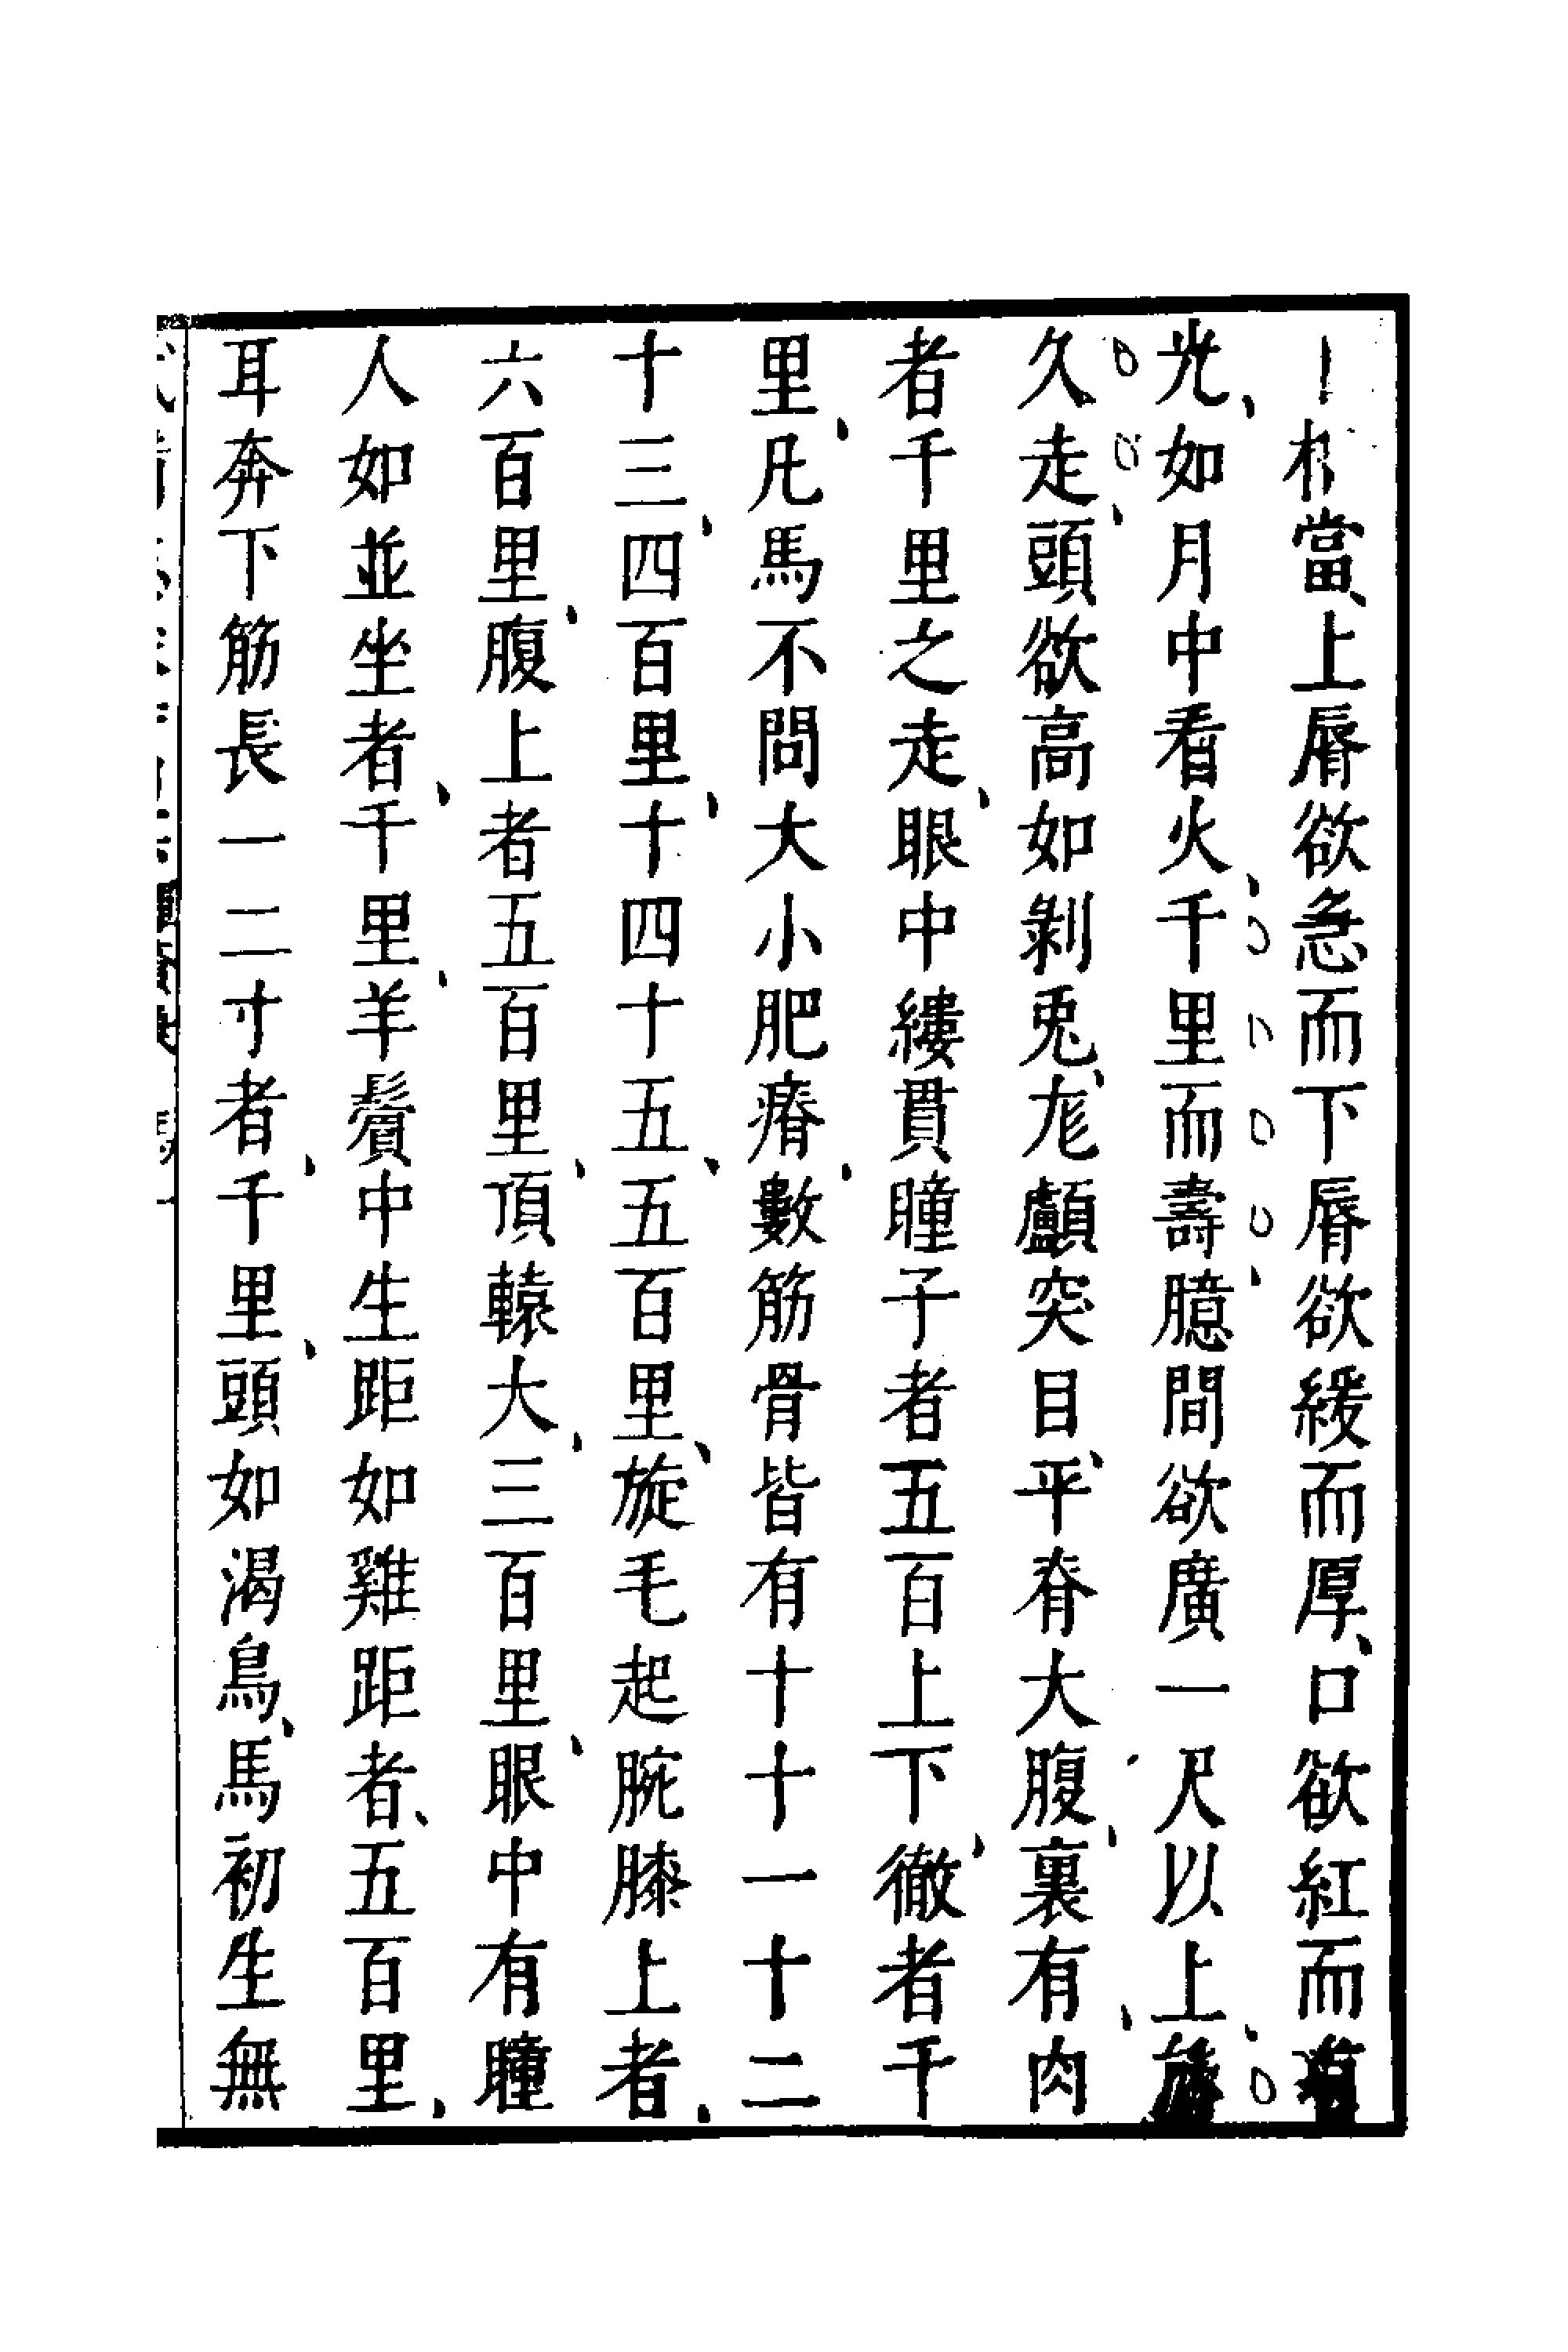 當上脣欲急而下脣欲緩而厚口欲紅而有
光如月中看火千里而壽臆間欲廣一尺以上能
久走頭欲高如剝兎尨顱突目平脊大腹裏有肉
者千里之走眼中縷貫瞳子者五百上下徹者千
里凡馬不問大小肥瘠數筋骨皆有十十一十二
十三四百里十四十五五百里旋毛起腕膝上者
六百里腹上者五百里頂轅大三百里眼中有瞳
人如並坐者千里羊鬚中生距如雞距者五百里
耳奔下筋長一二寸者千里頭如渴鳥馬初生無